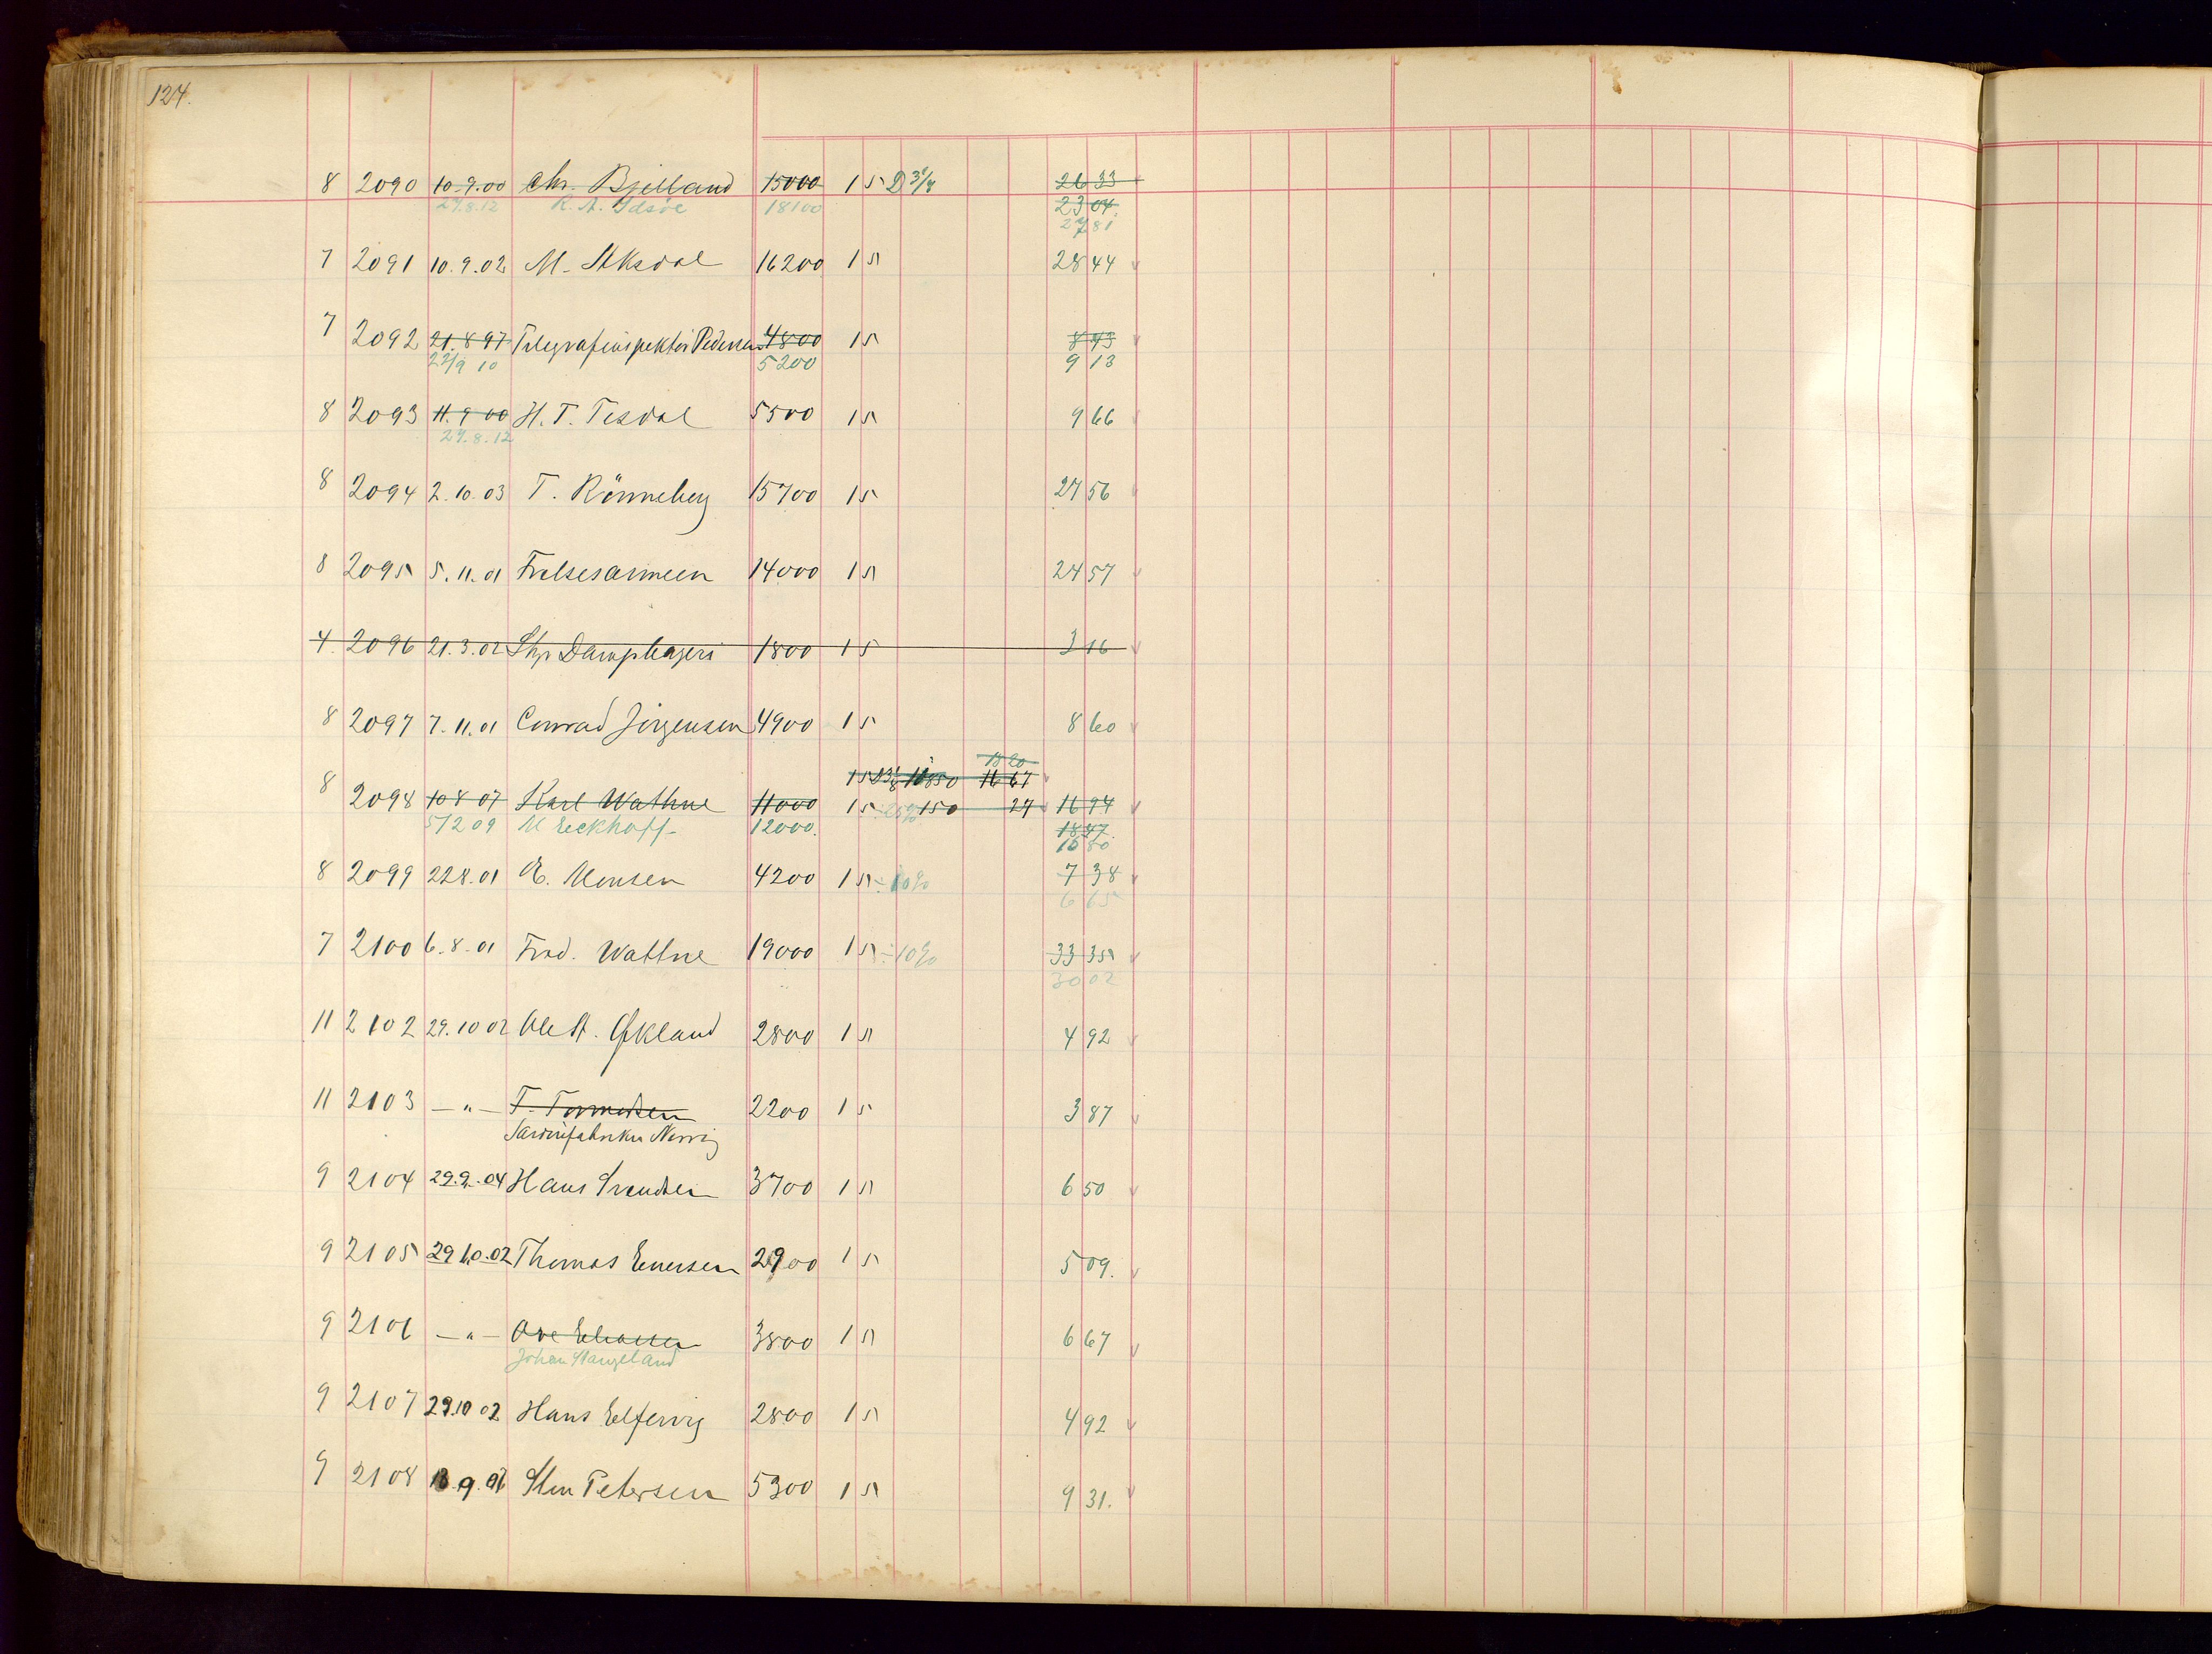 124.
8 2090 10.9.00 Chr. Bjelland 15000 15 D 3/4 26 33
27.8.12 R. A. Idsöe 18100 23 04
27 81
7 2091 10.9.02 M. Aksdal 16200 15 28 44
7 2092 21.8.97 Telegrafinspektör Pedersen 4800 15 8 43
22/9 10 5200 9 13
8 2093 11.9.00 H. T. Tesdal 5500 15 9 66
27.8.12
8 2094 2.10.03 T. Rönneberg 15700 15 27 56
8 2095 5.11.01 Frelsesarmeen 14000 15 24 57
4 2096 21.3.02 Dampbageri 1800 15 3 16
8 2097 7.11.01 Conrad Jörgensen 4900 15 8 60
18 20
15 10850 16 67
8 2098 10.8.07 Karl Wathne 11000 15 150 27 16 94
5/2 09 M Eckhoff 12000. 18 47
8 2099 22.8.01 E. Monsen 4200 15 ÷ 10% 7 38
6 65
7 2100 6.8.01 Fred. Wathne 19000 15 ÷ 10% 33 35
30 02
11 2102 29.10 02 Ole A. Økland 2800 15 4 92
11 2103 —„— T. Tormodsen 2200 15 3 87
Sardinfabriken
9 2104 29.9.04 Hans Svendsen 3700 15 6 50
9 2105 29 10.02 Thomas Enersen 2900 15 5 09.
9 2106 —„— Ove Eliassen 3800 15 6 67
Johan Stangeland
9 2107 29.10 02 Hans Elfervig 2800 15 4 92
9 2108 Sten Petersen 5300 15 9 31.